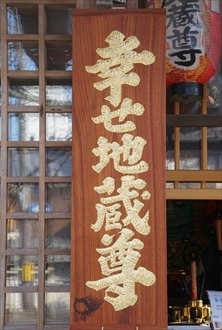 幸せ地蔵尊
蔵尊